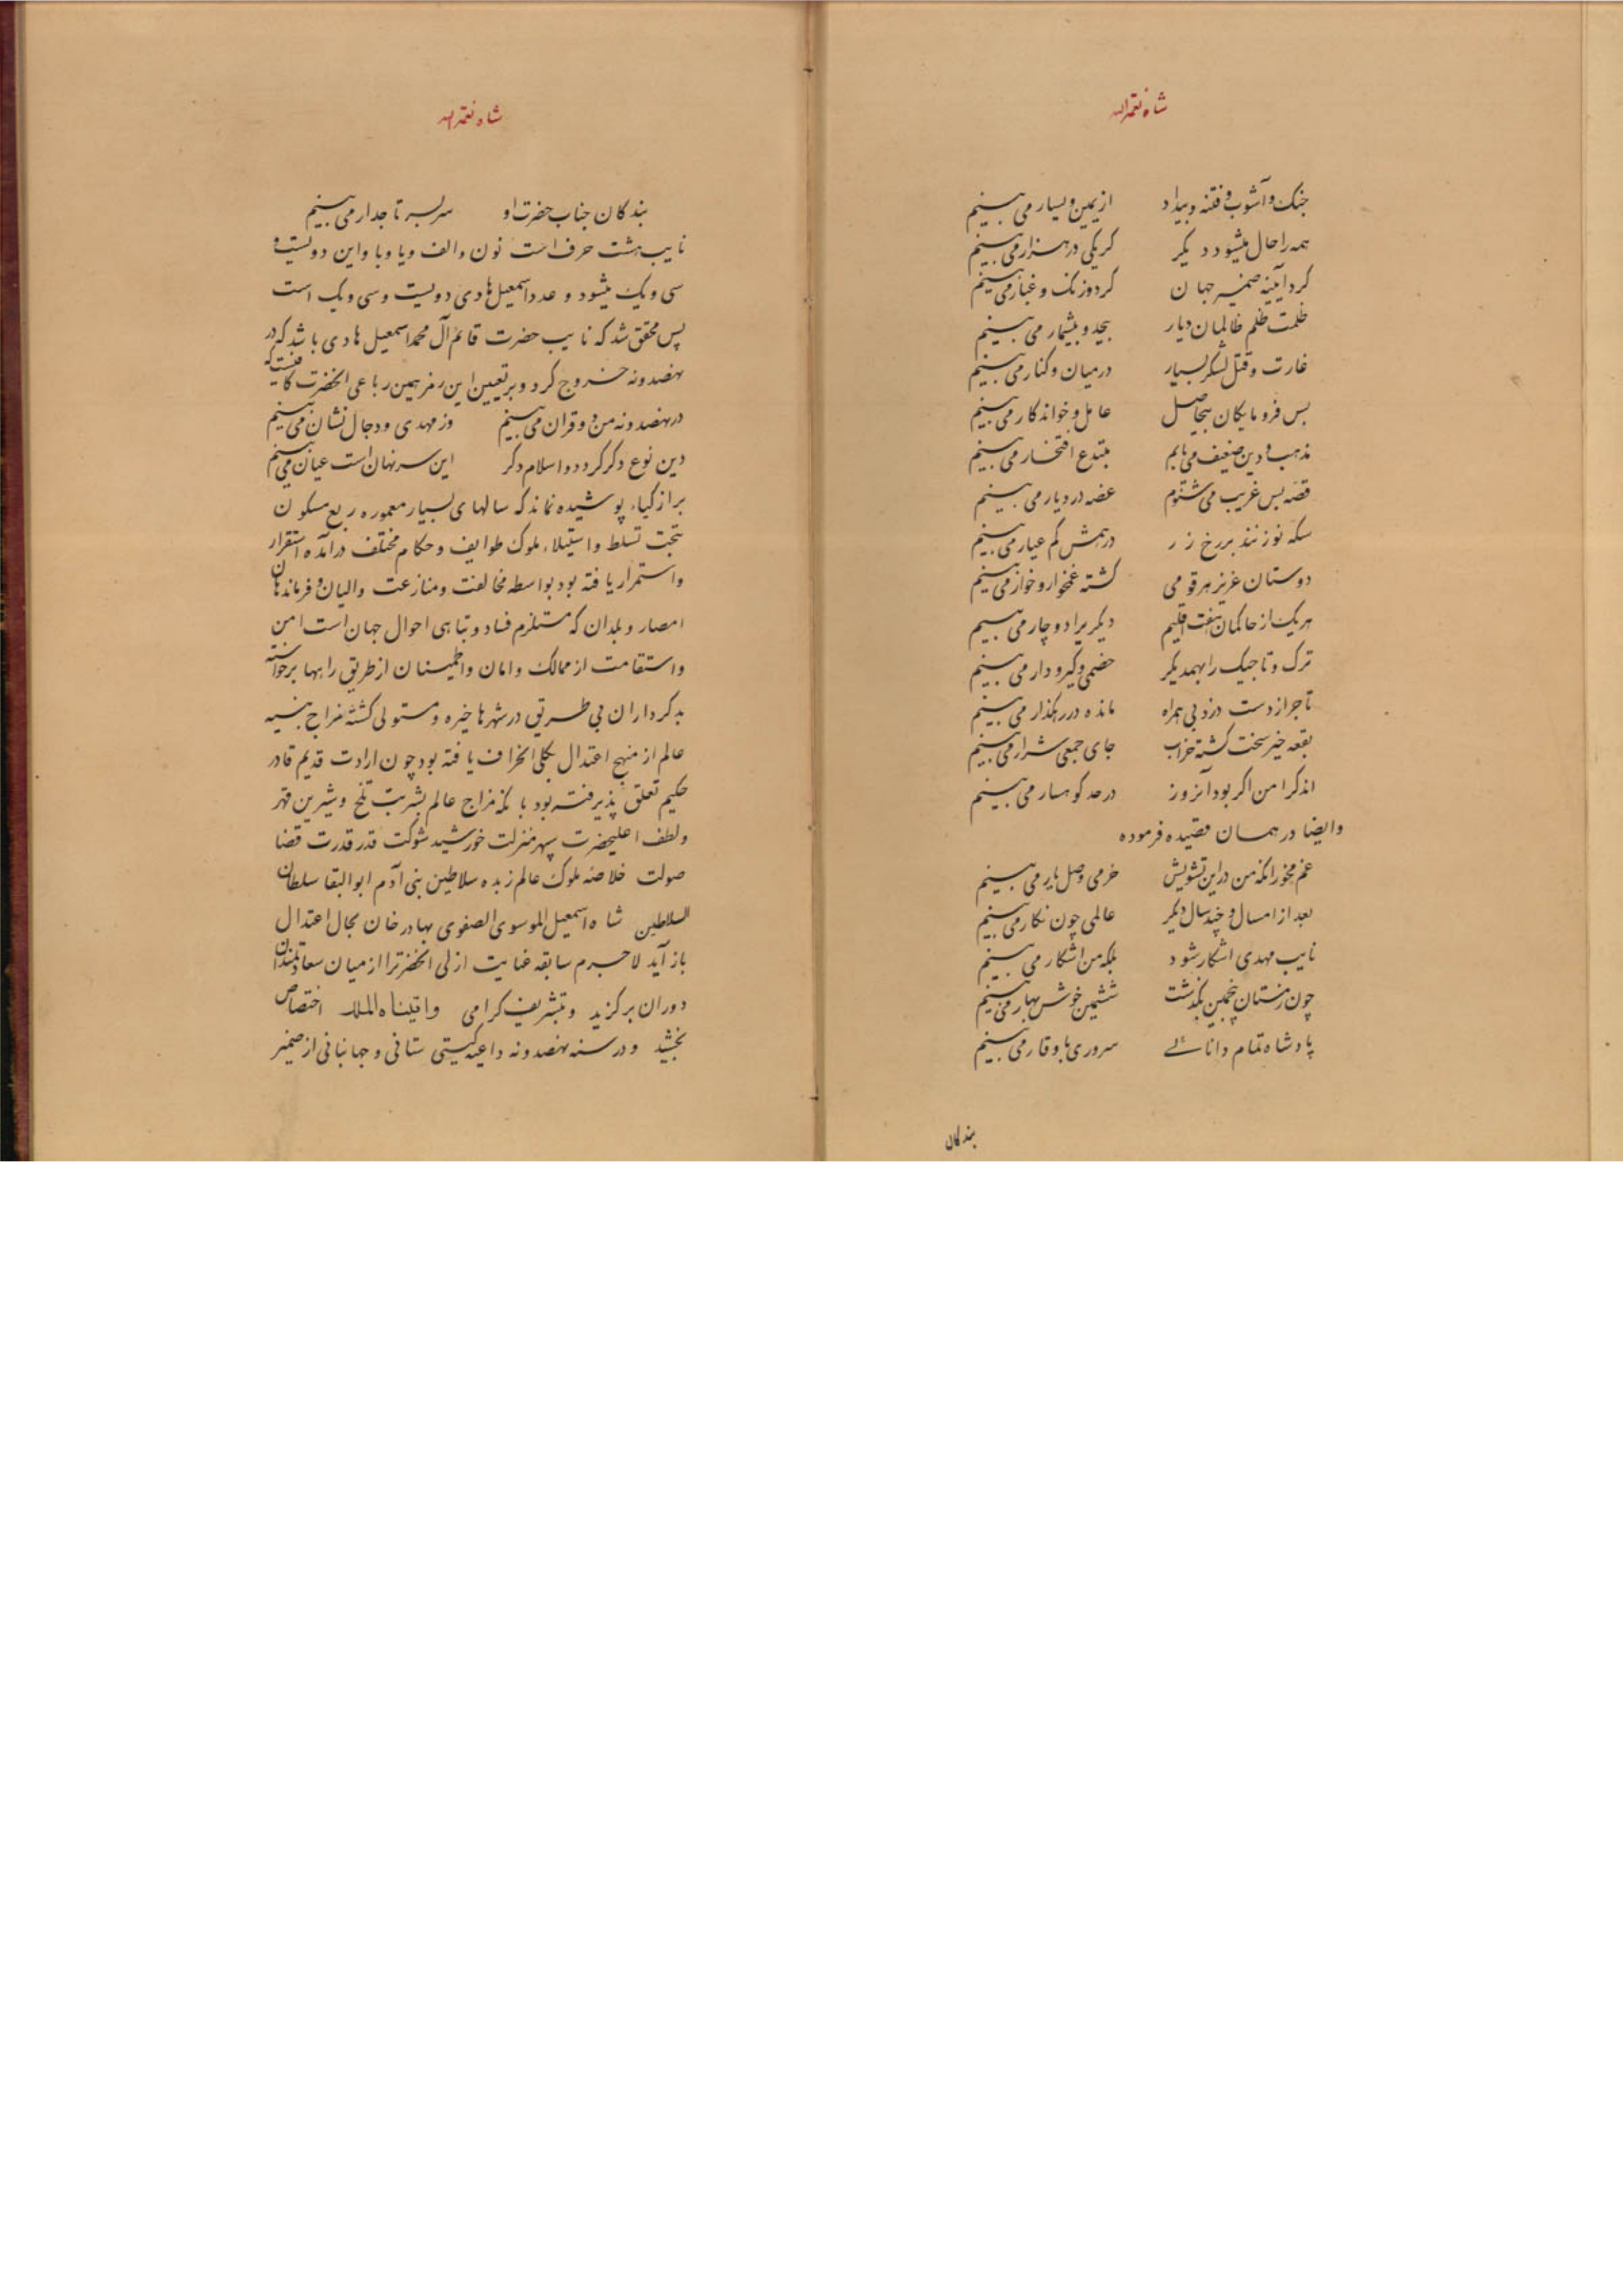 شاه نعمة الله
جنک و آشوب و فتنه و بیداد از یمین و یسار می بینم
همه را حال میشود دیکر کر یکی در هزار می بینم
کرد آیینه ضمیر جهان کرد و زنک و غبار می بینم
ظلمت ظلم ظالمان دیار بیحد و بیشمار می بینم
غارت و قتل لشکر بسیار در میان و کنار می بینم
بس فرومایکان بیحاصل عامل و خواندکار می بینم
مذهب و دین ضعیف می یابم مبتدع افتخار می بینم
قصه بس غریب می شنوم غصه در دیار می بینم
سکه نو زنند بر رخ زر درهمش کم عیار می بینم
دوستان عزیز هر قومی کشته غمخوار و خوار می بینم
هر یک از حاکمان هفت اقلیم دیکریرا دوچار می بینم
ترک و تاجیک را بهمدیکر خصمی و کیرودار می بینم
تاجر از دست دزد بی همراه مانده در رهکذار می بینم
بقعه خیر سخت کشته خراب جای جمعی شرار می بینم
اندکی امن اکر بود آنروز در حد کوهسار می بینم
وایضا در همان قصیده فرموده
غم مخور زانکه من در این تشویش خرمی وصل یار می بینم
بعد از امسال و چند سال دیکر عالمی چون نکار می بینم
نایب مهدی اشکار شود بلکه من اشکار می بینم
چون زمستان پنجمین بکذشت ششمین خوش بهار می بینم
پادشاه تمام دانائے سروری با وقار می بینم
بندکان
شاه نعمة الله
بندکان جناب حضرت او سربسر تاجدار می بینم
نایب هشت حرف است نون و الف و یا و با و این دویست و
سی و یک میشود و عدد اسمعیل هادی دویست و سی و یک است
پس محقق شد که نایب حضرت قائم آل محمد اسمعیل هادی باشد که در
نهصد و نه خروج کرد و بر تعیین این رمز همین رباعی انحضرت کافیست که
در نهصد و نه من دو قران می بینم وز مهدی و دجال نشان می بینم
دین نوع دکر کردد و اسلام دکر این سر نهان است عیان می بینم
بر ازکیاء پوشیده نماند که سالهای بسیار معموره ربع مسکون
تحت تسلط و استیلاء ملوک طوایف و حکام مختلف درآمده استقرار
و استمرار یافته بود بواسطه مخالفت و منازعت والیان و فرماندهان
امصار و بلدان که مستلزم فساد و تباهی احوال جهان است امن
و استقامت از ممالک و امان و اطمینان از طریق راهها برخواسته
بدکرداران بی طریق در شهرها خیره و مستولی کشته مزاج بنیه
عالم از منهج اعتدال بکلی انحراف یافته بود چون ارادت قدیم قادر
حکیم تعلق پذیرفته بود بآنکه مزاج عالم بشربت تلخ و شیرین قهر
و لطف اعلیحضرت سپهر منزلت خورشید شوکت قدر قدرت قضا
صولت خلاصه ملوک عالم زبده سلاطین بنی آدم ابو البقا سلطان
السلاطین شاه اسمعیل الموسوی الصفوی بهادر خان بحال اعتدال
باز آید لاجرم سابقه عنایت ازلی انحضرترا از میان سعادتمندان
دوران برکزید و بتشریف کرامی واتیناه الملک اختصاص
بخشید و در سنه نهصد و نه داعیه کیتی ستانی و جهانبانی از ضمیر